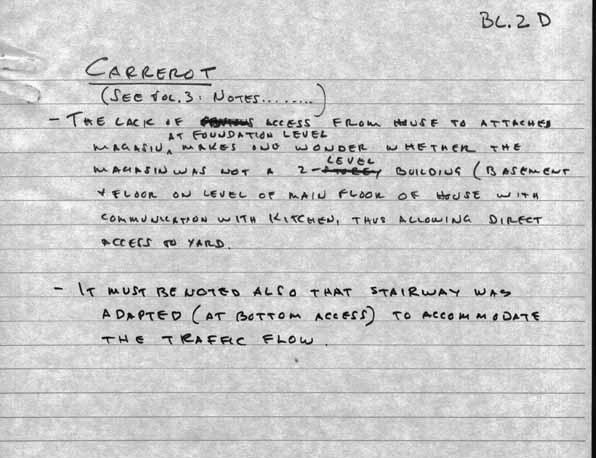 BL.2 D
CARREROT
(SEE VOL.3: NOTES........)
- THE LACK OF ACCESS FROM HOUSE TO ATTACHED
AT FOUNDATION LEVEL
MAGASIN, MAKES ONE WONDER WHETHER THE
LEVEL
MAGASIN WAS NOT A 2-STOREY BUILDING (BASEMENT
& FLOOR ON LEVEL OF MAIN FLOOR OF HOUSE WITH
COMMUNICATION WITH KITCHEN, THUS ALLOWING DIRECT
ACCESS TO YARD.
- IT MUST BE NOTED ALSO THAT STAIRWAY WAS
ADAPTED (AT BOTTOM ACCESS) TO ACCOMMODATE
THE TRAFFIC FLOW.